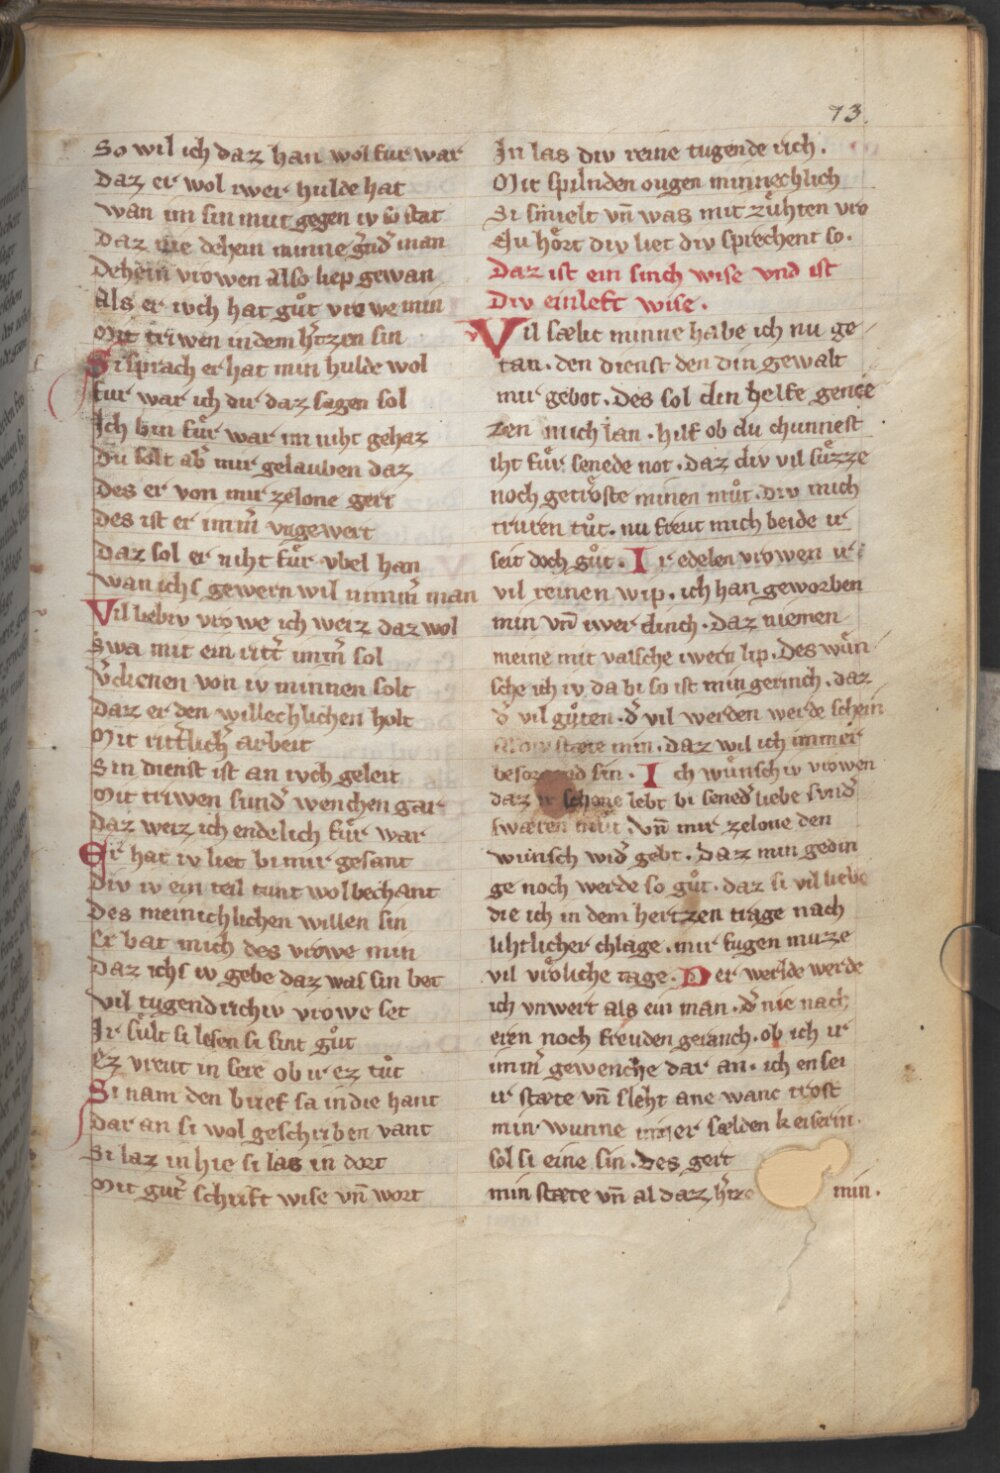 73.
So wil ich daz han wol fur war
Daz er wol iwer hulde hat
wan im sin mut gegen iv so stat
Daz nie dehein minne gerndˀ man
Dehein vrowen also liep gewan
Als er ivch hat gůt vrowe min
Mit triwen in dem hˀtzen sin
Si sprach er hat min hulde wol
fur war ich dir daz sagen sol
Ich bin fůr war im niht gehaz
Du solt abˀ mir gelauben daz
Des er von mir ze lone gert
Des ist er immˀ vngewert
Daz sol er niht fůr vbel han
wan ichs gewern wil nimmˀ man
Vil liebiv vrowe ich weiz daz wol
Swa mit ein rittˀ immˀ sol
Vˀdienen von iv minnen solt
Daz er den willechlichen holt
Mit rittˀlichˀ arbeit
Sin dienst ist an ivch geleit
Mit triwen sundˀ wenchen gar
Daz weiz ich endelich fůr war
Er hat iv liet bi mir gesant
Div iv ein teil tunt wol bechant
Des meinichlichen willen sin
Er bat mich des vrowe min
Daz ichs iv gebe daz was sin bet
Vil tugend richiv vrowe set
Ir sůlt si lesen si sint gůt
Ez vreut in sere ob ir ez tůt
Si nam den brief sa in die hant
Dar an si wol geschriben vant
Si laz in hie si las in dort
Mit gutˀ schrift wise vn̄ wort
In las div reine tugende rich.
Mit spilnden ougen minnechlich
Si smielt vn̄ was mit zůhten vro
Nu hôrt div liet div sprechent so.
Daz ist ein sinch wise vnd ist
Div einleft wise.
Vil sælic minne habe ich nu ge
tan. den dienst den din gewalt
mir gebot. Des sol din helfe genie
zen mich lan. hilf ob du chunnest
iht fůr senede not. daz div vil sůzze
noch getrôste minen můt. div mich
truren tůt. nu freut mich beide ir
seit doch gůt. Ir edelen vrowen ir
vil reinen wip. ich han geworben
min vn̄ iwer dinch. daz niemen
meine mit valsche iwern lip. Des wůn
sche ich iv da bi so ist min gerinch. daz
dˀ vil gůten. dˀ vil werden werde schein
stæte min. daz wil ich immer
sin. Ich wůnsch iv vrowen
daz ir schone lebt bi senedˀ liebe svndˀ
swæren můt vn̄ mir ze lone den
wunsch widˀ gebt. Daz min gedin
ge noch werde so gůt. daz si vil liebe
die ich in dem hertzen trage nach
lihtlicher chlage. mir fugen muze
vil vrôliche tage. Der werlde werde
ich vnwert als ein man. dˀ nie nach
eren noch freuden geranch. ob ich ir
immˀ gewenche dar an. ich en sei
ir stæte vn̄ sleht ane wanc trost
min wunne miner sælden keiserin.
sol si eine sin. Des gert
min stæte vn̄ al daz hˀtze min.